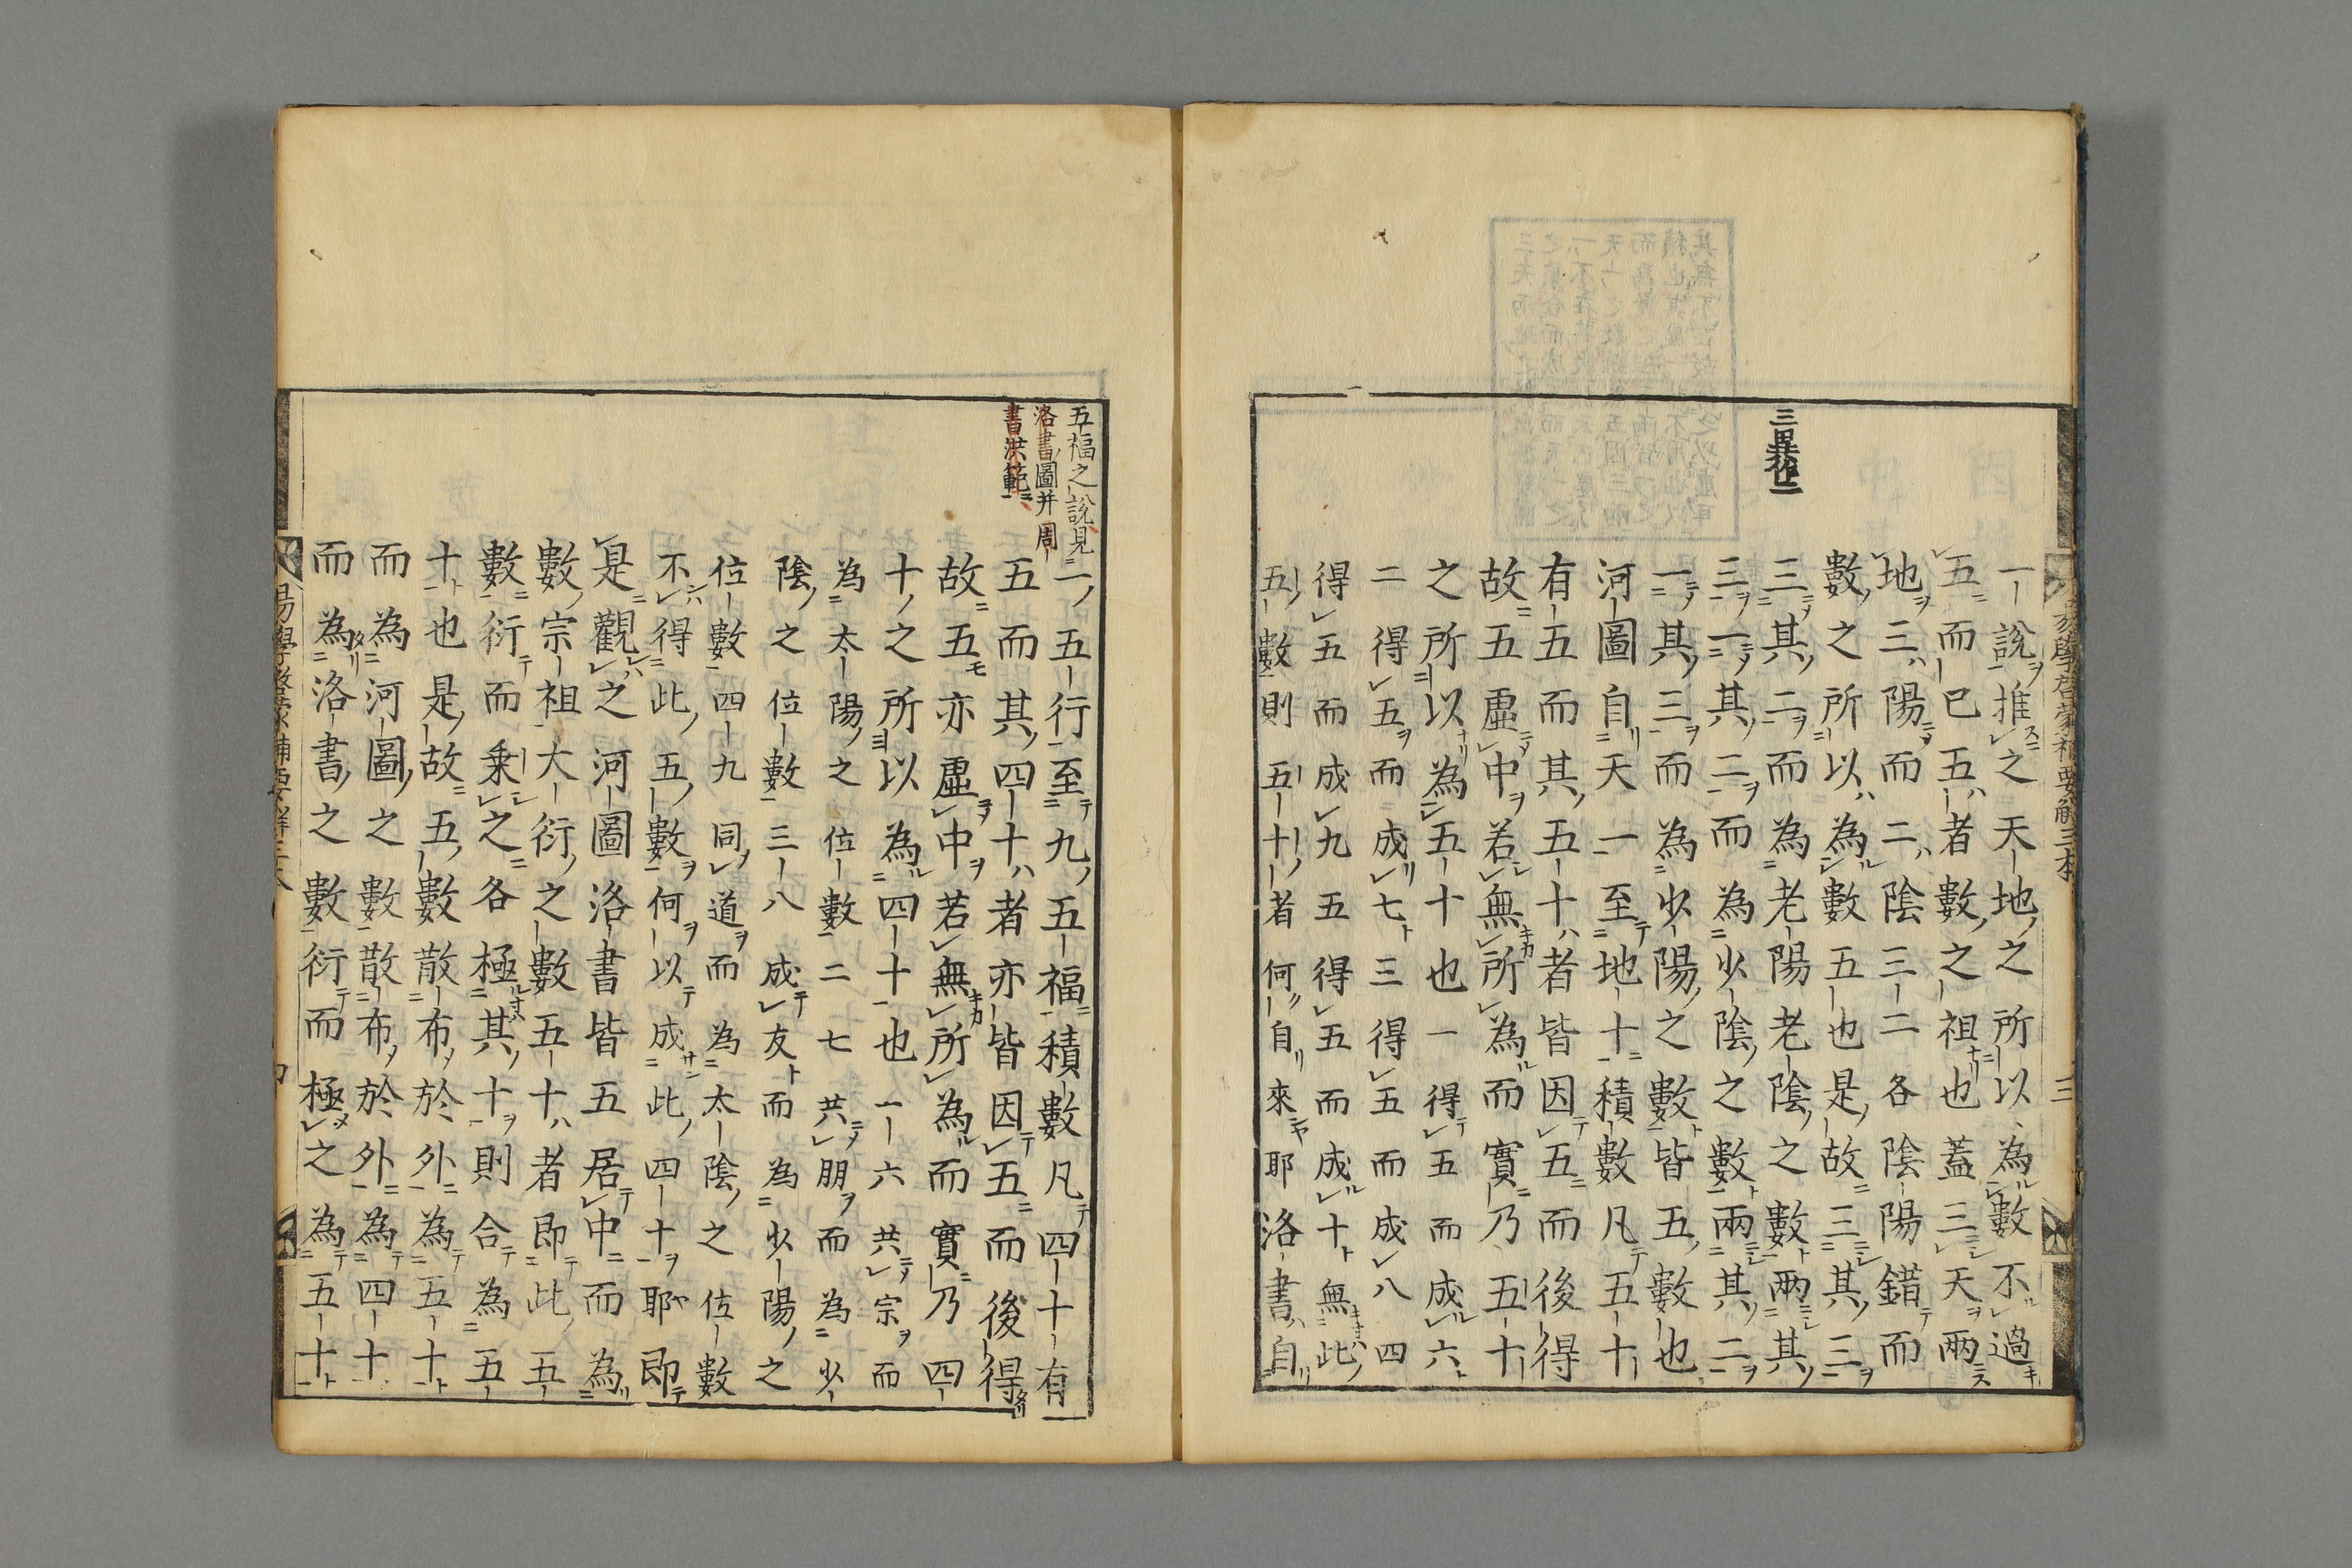 一説推之天地之所以為數不過
五而已五者數之祖也蓋三天兩
地三陽而二陰三二各陰陽錯而
數之所以為數五也是故三其三
三其二而為老陽老陰之數兩其
三一其二而為少陰之數兩其二
一其三而為少陽之數皆五數也
河圖自天一至地十積數凡五十
有五而其五十者皆因五而後得
故五虛中若無所為而實乃五十
之所以為五十也一得五而成六
二得五而成七三得五而成八四
得五而成九五得五而成十無此
五數則五十者何自來耶洛書自
五福之說見
洛書圖并周
書洪範
一五行至九五福積數凡四十有
五而其四十者亦皆因五而後得
故五亦虛中若無所為而實乃四
十之所以為四十也一六共宗而
為太陽之位數二七共朋而為少
陰之位數三八成友而為少陽之
位數四九同道而為太陰之位數
不得此五數何以成此四十耶即
是觀之河圖洛書皆五居中而為
數宗祖大衍之數五十者即此五
數衍而乘之各極其十則合為五
十也是故五數散布於外為五十
而為河圖之數散布於外為四十
而為洛書之數衍而極之為五十